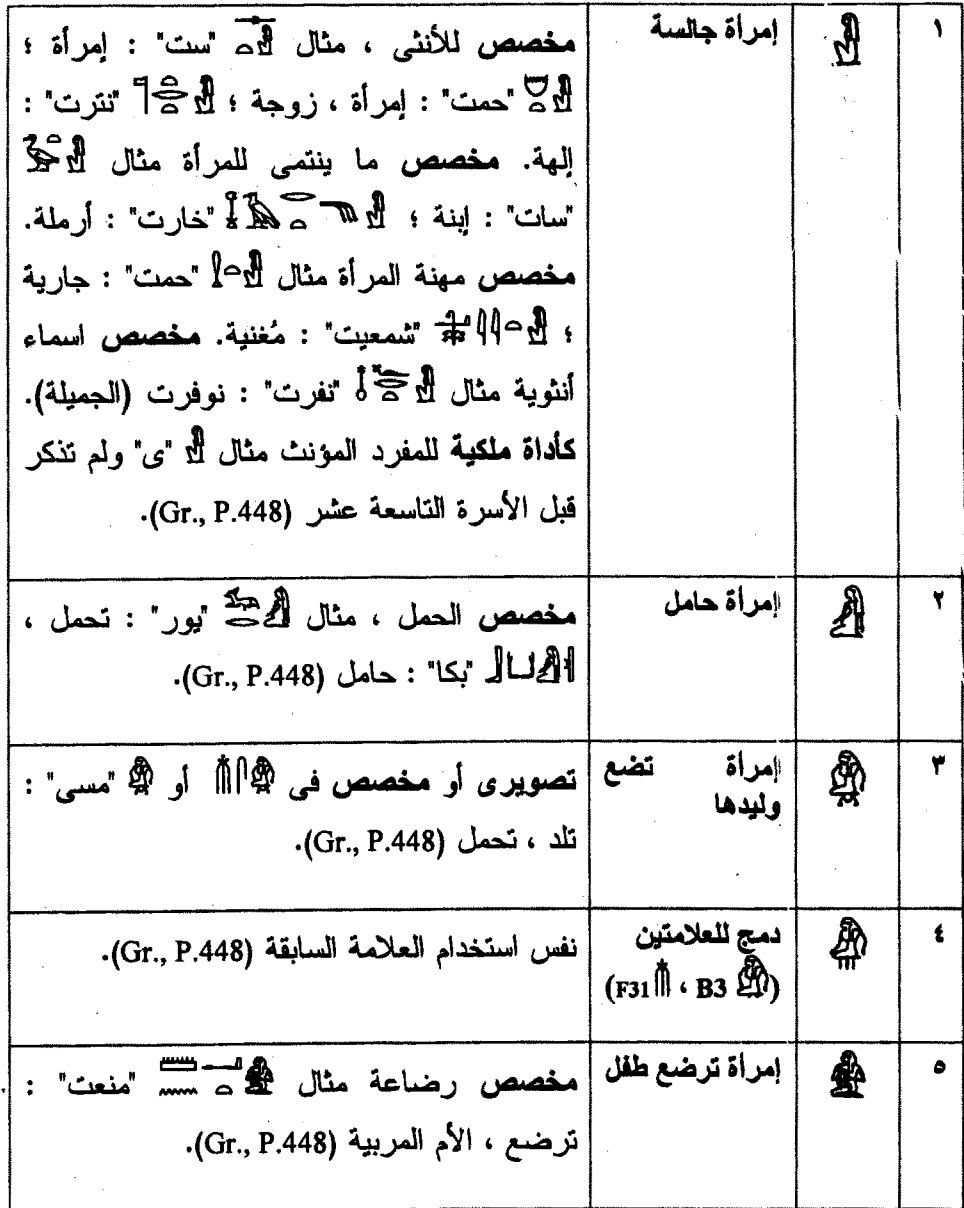 ١ 𓁐 إمرأة جالسة مخصص للأنثى ، مثال 𓊃𓏏𓁐 "ست" : إمرأة ؛
𓈞𓏏𓁐 "حمت" : إمرأة ، زوجة ؛ 𓊹𓂋𓏏𓁐 "نترت" :
إلهة. مخصص ما ينتمى للمرأة مثال 𓅭𓏏𓁐
"سات" : إبنة ؛ "خارت" : أرملة.
مخصص مهنة المرأة مثال 𓍛𓏏𓁐 "حمت" : جارية
؛ "شمعيت" : مُغنية. مخصص اسماء
أنثوية مثال 𓄤𓆑𓂋𓏏𓁐 "نفرت" : نوفرت (الجميلة).
كأداة ملكية للمفرد المؤنث مثال 𓁐 "ى" ولم تذكر
قبل الأسرة التاسعة عشر (Gr., P.448).
٢ 𓁒 إمرأة حامل مخصص الحمل ، مثال 𓃛𓂋𓁒 "يور" : تحمل ،
"بكا" : حامل (Gr., P.448).
٣ 𓁓 إمرأة تضع تصويرى أو مخصص فى 𓄟𓋴𓁓 أو 𓁓 "مسى" :
وليدها تلد ، تحمل (Gr., P.448).
٤ 𓁔 دمج للعلامتين نفس استخدام العلامة السابقة (Gr., P.448).
(B3 𓁓 ، F31 𓄟)
٥ 𓁕 إمرأة ترضع طفل مخصص رضاعة مثال 𓏠𓈖𓂝𓏏𓁕 "منعت" :
ترضع ، الأم المربية (Gr., P.448).